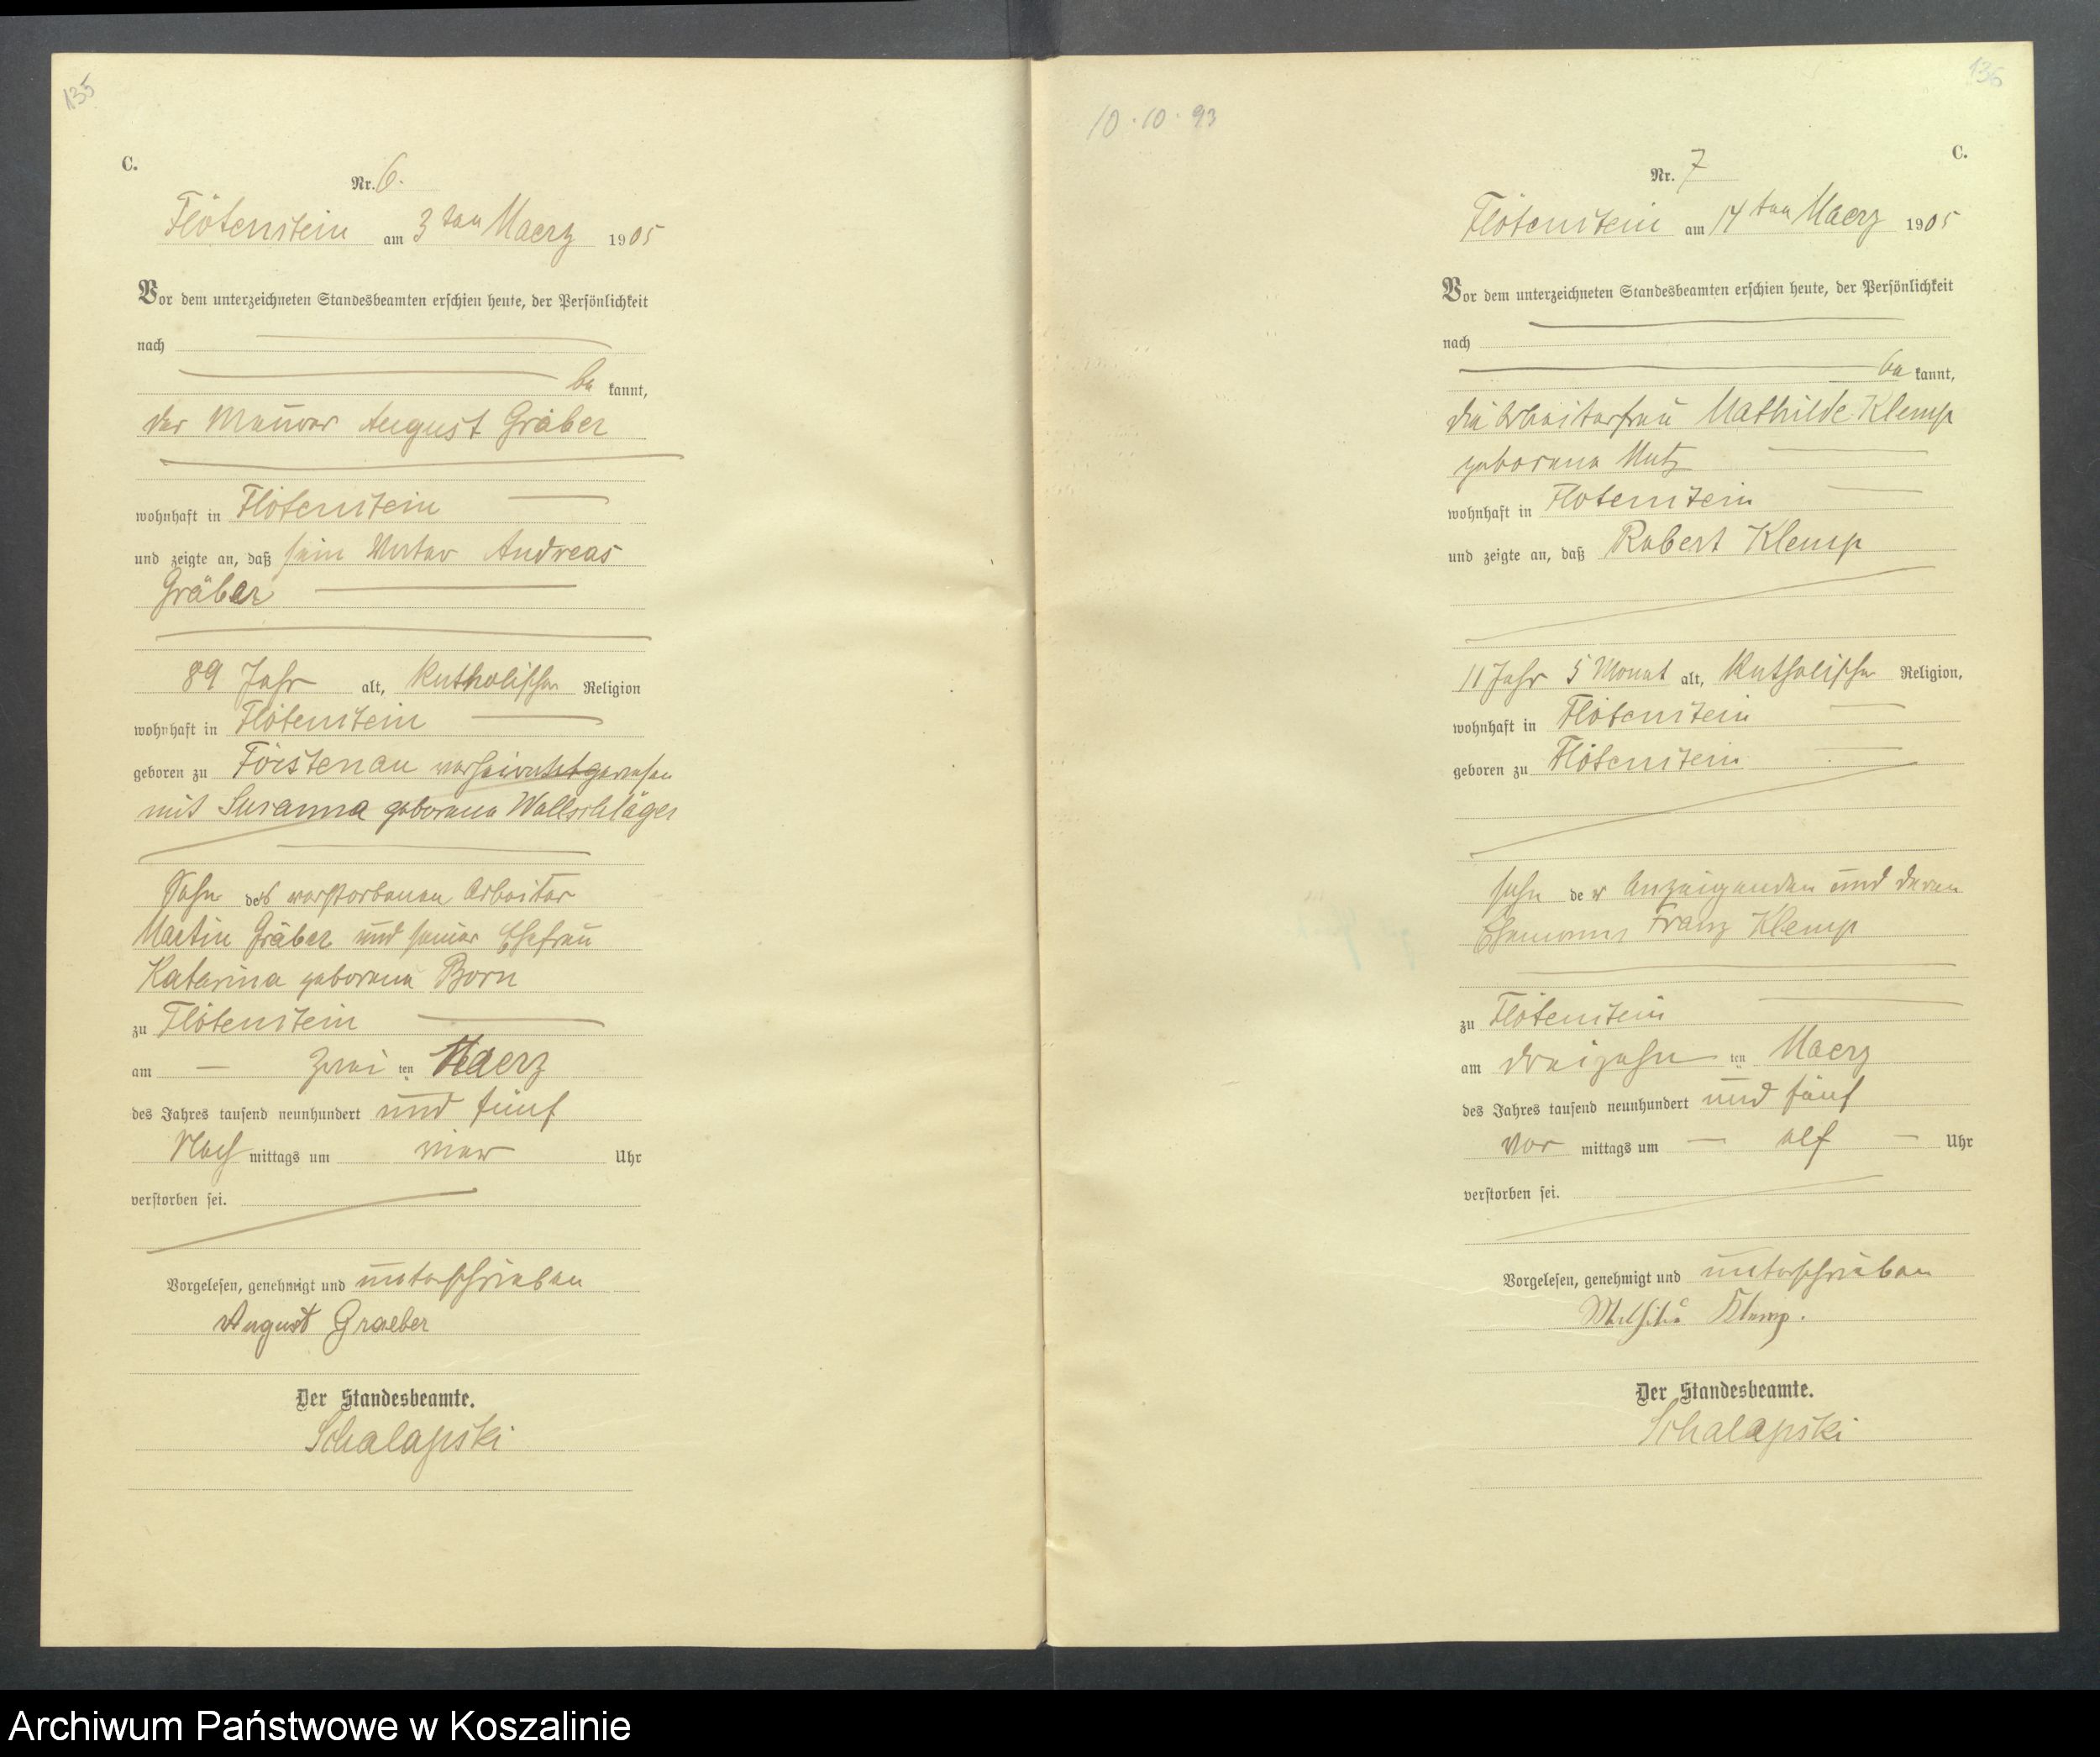 135
C.
Nr. 6.
Flötenstein am 3ten Maerz 1905
Vor dem unterzeichneten Standesbeamten erschien heute, der Persönlichkeit
nach
be kannt,
der Maurer August Gräber
wohnhaft in Flötenstein
und zeigte an, daß sein Vater Andreas
Gräber
89 Jahr alt, katholischer Religion
wohnhaft in Flötenstein
geboren zu Förstenau verheirathet gewesen
mit Susanna geborene Wollschläger
Sohn des verstorbenen Arbeiter
Martin Gräber und seiner Ehefrau
Katarina geborene Born
zu Flötenstein
am zwei ten Maerz
des Jahres tausend neunhundert und fünf
Nach mittags um vier Uhr
verstorben sei.
Vorgelesen, genehmigt und unterschrieben
August Graeber
Der Standesbeamte.
Schalapski
136
10.10.93
C.
Nr. 7
Flötenstein am 14ten Maerz 1905
Vor dem unterzeichneten Standesbeamten erschien heute, der Persönlichkeit
nach
be kannt,
die Arbeiterfrau Mathilde Klemp
geborene Mutz
wohnhaft in Flötenstein
und zeigte an, daß Robert Klemp
11 Jahr 5 Monat alt, katholischer Religion,
wohnhaft in Flötenstein
geboren zu Flötenstein
Sohn der Anzeigenden und deren
Ehemanns Franz Klemp
zu Flötenstein
am dreizehn ten Maerz
des Jahres tausend neunhundert und fünf
Vor mittags um elf Uhr
verstorben sei.
Vorgelesen, genehmigt und unterschrieben
Klemp.
Der Standesbeamte.
Schalapski
Archiwum Państwowe w Koszalinie